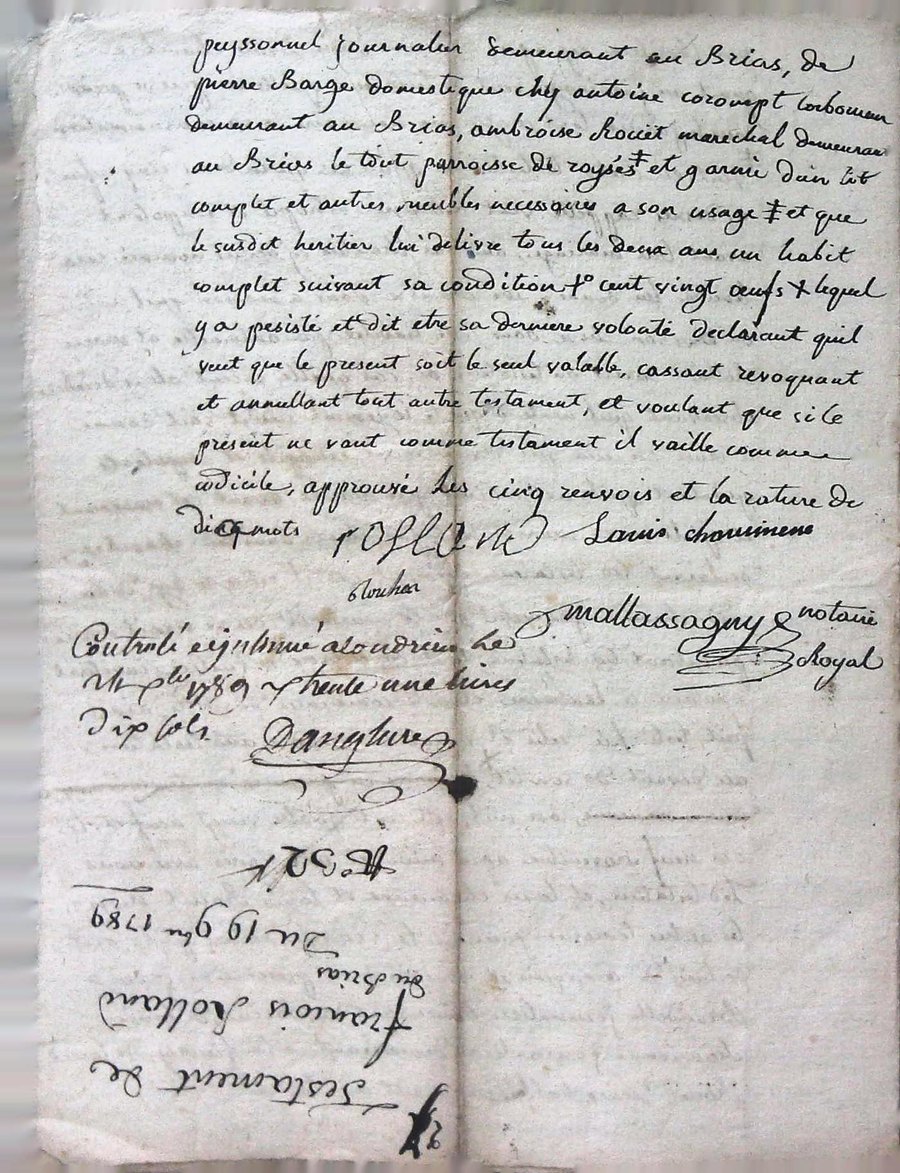 peyssonnel journalier demeurant au Brias, de
pierre Barge domestique chez antoine corompt
demeurant au Brias, ambroise Rouët marechal demeurant
au Brias le tout parroisse de roysés ‡ et garnie d'un lit
complet et autres meubles necessaires a son usage ‡ et que
le susdit heritier lui delivre tous les deux ans un habit
complet suivant sa condition +° cent vingt œufs + lequel
y a pesisté et dit etre sa derniere volonté declarant quil
veut que le present soit le seul valable, cassant revoquant
et annullant tout autre testament, et voulant que si le
present ne vaut comme testament il vaille comme
codicile, approuvé les cinq renvois et la rature de
mots rolland Louis chouimene
mallassagny notaire
Royal
Controlé le
1789 trente une livres
dix sols Danglure
N° 32
Du 19 9bre 1789
du Brias
francois Rolland
Testament de